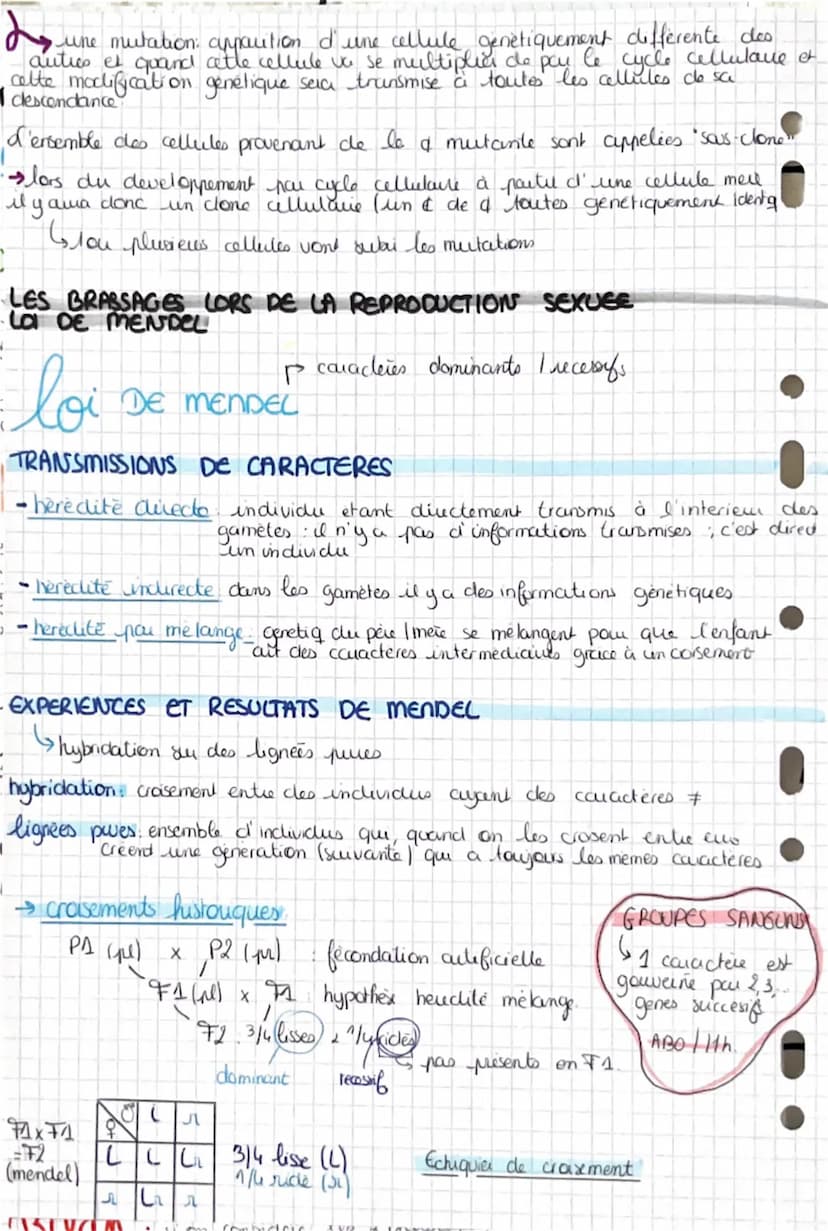 ↳ une mutation: apparition d'une cellule génétiquement différente des
autres et quand cette cellule va se multiplier de par le cycle cellulaire et
cette modification génétique sera transmise à toutes les cellules de sa
descendance
d'ensemble des cellules provenant de la ¢ mutante sont appelées "sas-clone"
→ lors du developpement par cycle cellulaire à partir d'une cellule mere
il y aura donc un clone cellulaire (un € de ¢ toutes génétiquement identq
↳ 1 ou plusieurs cellules vont subir les mutations
LES BRASSAGES LORS DE LA REPRODUCTION SEXUEE
LOI DE MENDEL
↱ caractères dominants / recessifs
loi DE MENDEL
TRANSMISSIONS DE CARACTERES
- hérédité directe: individu etant directement transmis à l'interieur des
gamètes: il n'y a pas d'informations transmises; c'est direct
un individu
- hérédité indirecte: dans les gamètes il y a des informations génétiques
- hérédité par mélange: genetiq du père / mere se mélangent pour que l'enfant
ait des caractères intermediaires grâce à un croisement
EXPERIENCES ET RESULTATS DE MENDEL
↳ hybridation sur des lignées pures
hybridation: croisement entre des individus ayant des caractères ≠
lignées pures: ensemble d'individus qui, quand on les croisent entre eux
créend une géneration (suivante) qui a toujours les mêmes caractères
→ croisements historiques
P1 (pl) x P2 (pr) : fécondation artificielle
F1 (pl) x F1 hypothèse heredité mélange.
F2 3/4 lisses 1/4 ridés
↳ pas présents en F1.
dominant recessif
GROUPES SANGUINS
↳ 1 caractère est
gouverné par 2,3,..
genes succesif
ABO / rh.
♀ ♂ L r
F1 x F1
= F2
(mendel)
L L Lr
r Lr r
3/4 lisse (L)
1/4 ridé (r)
Echiquier de croisement